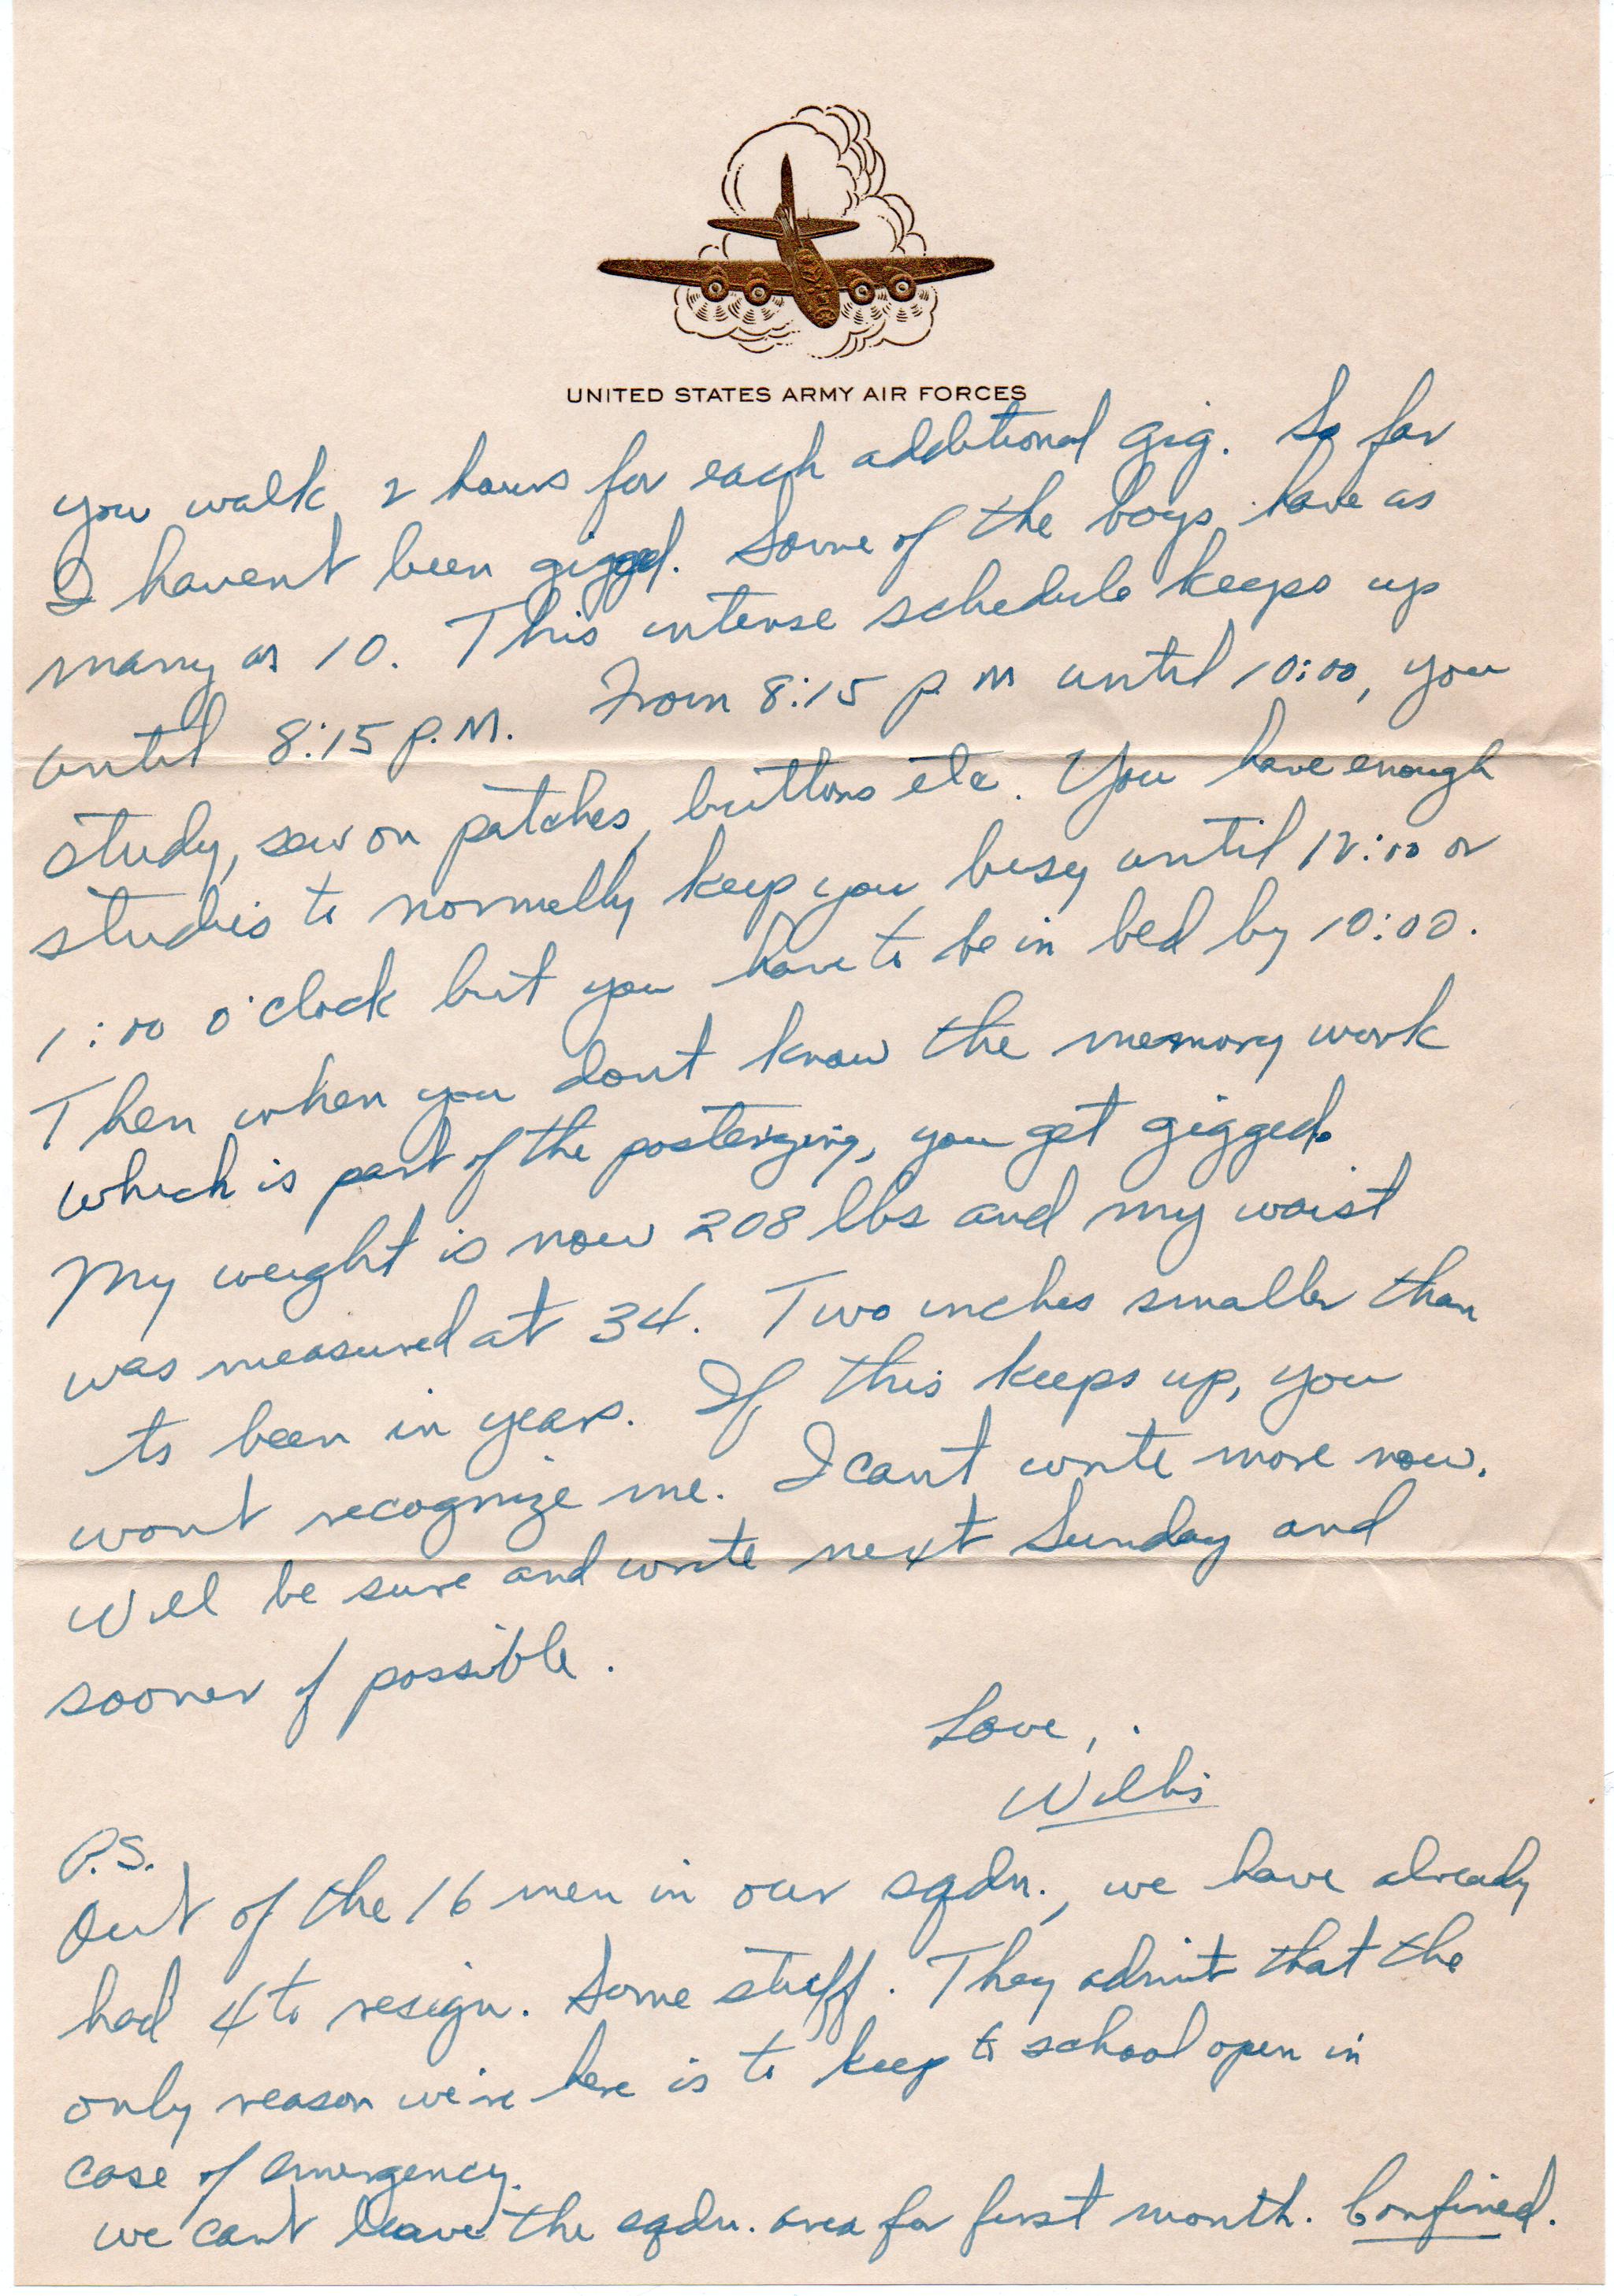 UNITED STATES ARMY AIR FORCES
you walk 2 hours for each additional gig. So far
I havent been gigged. Some of the boys have as
many as 10. This intense schedule keeps up
until 8:15 p.M. From 8:15 p M until 10:00, you
study, sew on patches, buttons etc. You have enough
studies to normally keep you busy until 12:00 or
1:00 o'clock but you have to be in bed by 10:00.
Then when you dont know the memory work
which is part of the you get gigged.
My weight is now 208 lbs and my waist
was measured at 34. Two inches smaller than
its been in years. If this keeps up, you
wont recognize me. I cant write more now.
Will be sure and write next Sunday and
sooner if possible.
Love,
Willis
P.S.
Out of the 16 men in our sqdn., we have already
had 4 to resign. Some stuff. They admit that the
only reason we're here is to keep to school open in
case of emergency.
we cant leave the sqdn. area for first month. Confined.